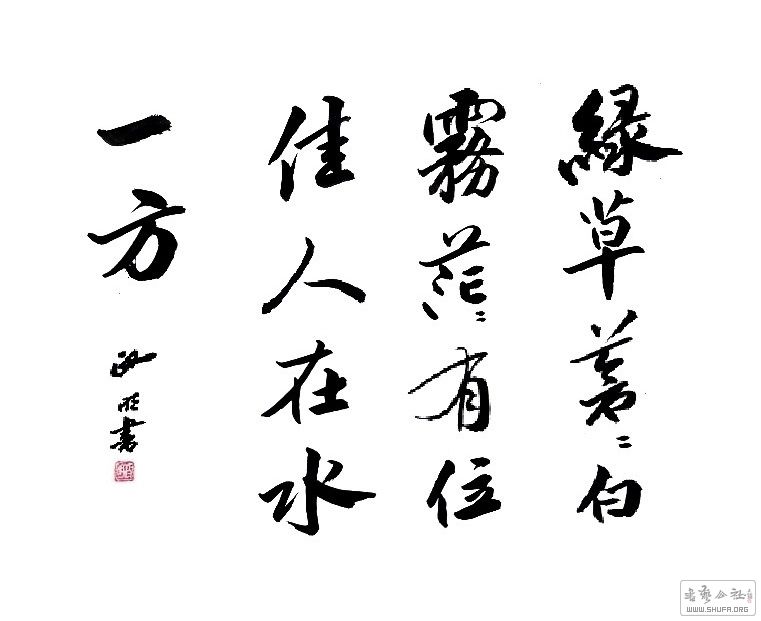 緑草蒼〻白
霧茫〻有位
佳人在水
一方
書
書藝公社
WWW.SHUFA.ORG